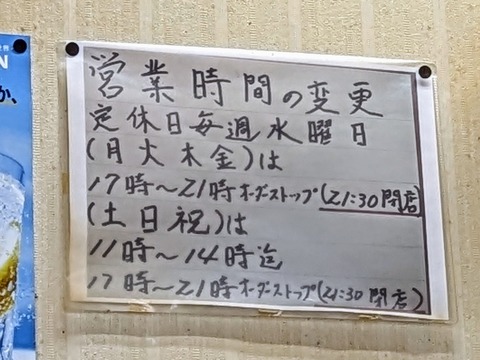 営業時間の変更
定休日毎週水曜日
(月火木金)は
17時〜21時オーダーストップ(21:30閉店)
(土日祝)は
11時〜14時迄
17時〜21時オーダーストップ(21:30閉店)